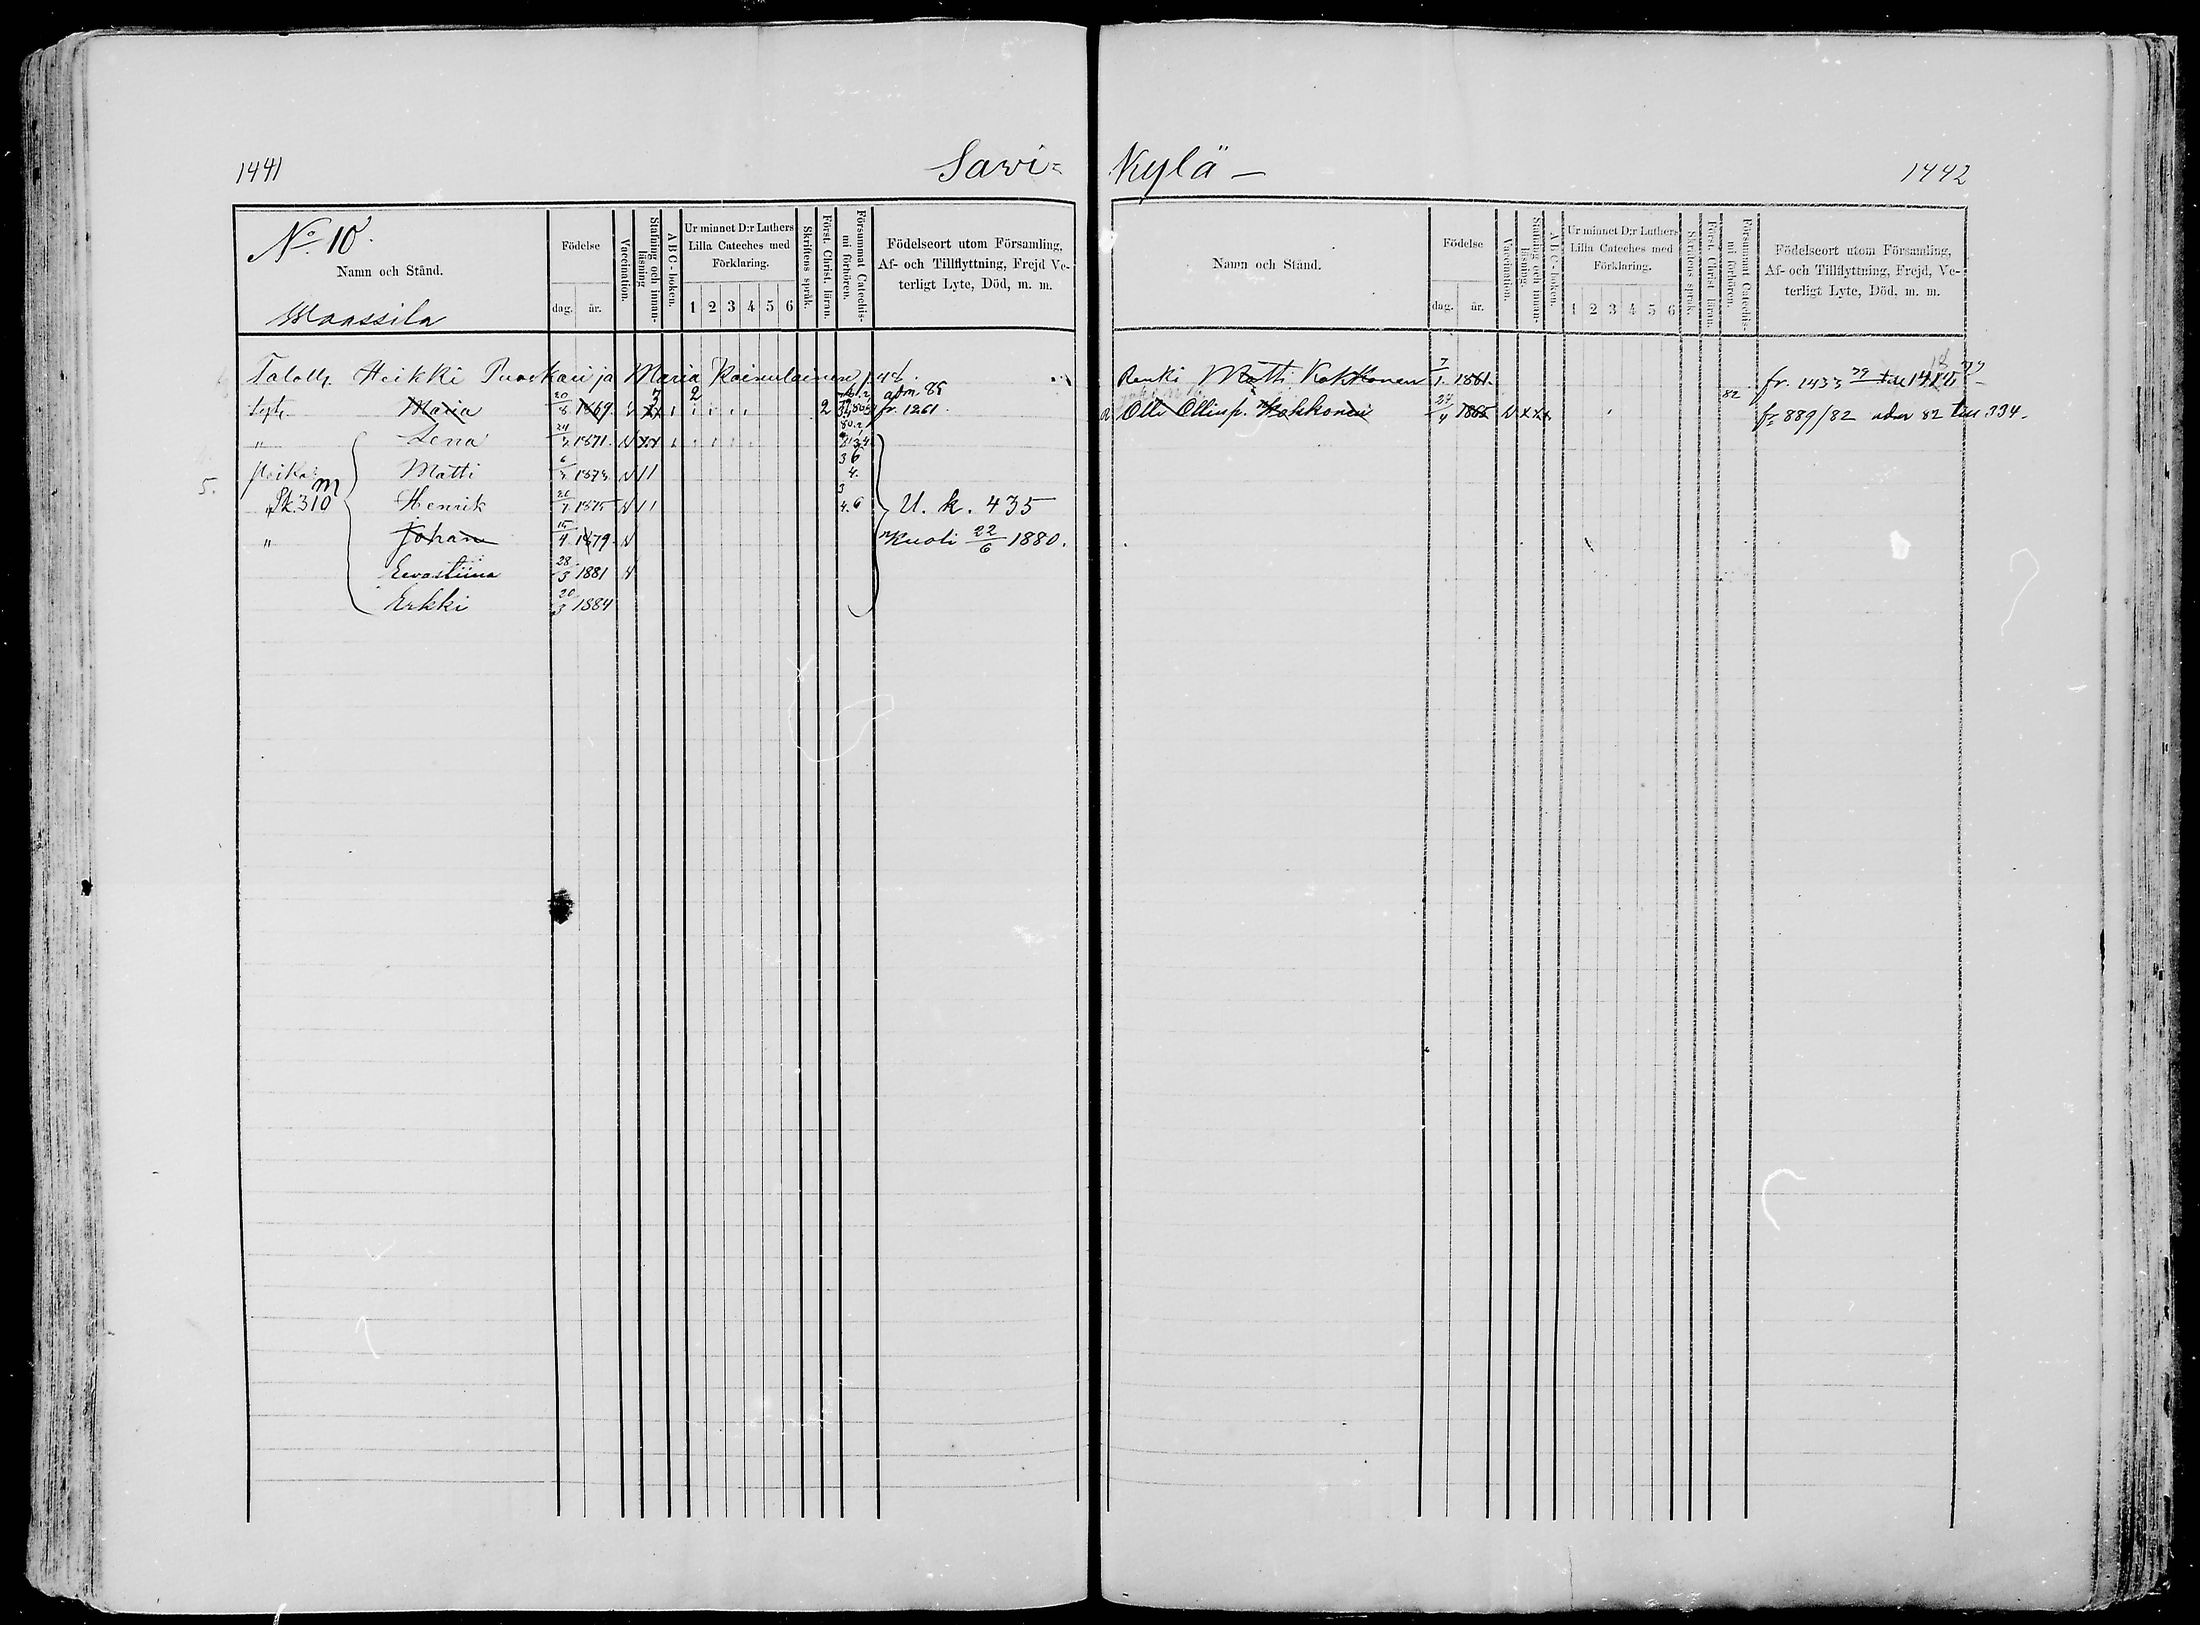 1441 Sawi=
No 10.
Namn och Stånd.
Födelse
dag. år.
Vaccination.
Stafning och innanläsning
ABC-boken.
Ur minnet D:r Luthers Lilla Cateches med Förklaring.
1 2 3 4 5 6
Skriftens språk.
Först. Christ. läran.
Försummat Catechismi förhören.
Födelseort utom Församling, Af- och Tillflyttning, Frejd Veterligt Lyte, Död, m. m.
Maassila
Heikki ja Maria Kainulainen
Maria 20/8 1869 2 adm. 85 fr. 1261.
" Lena 1871
Matti 1873
Sk. 310 Henrik 1875 U. k. 435
" Johan 15/4 1879 Kuoli 22/6 1880.
Eevastiina 28/3 1881
Erkki 20/3 1884
5.
Kylä — 1442
Namn och Stånd.
Födelse
dag. år.
Vaccination.
Stafning och innanläsning.
ABC-boken.
Ur minnet D:r Luthers Lilla Cateches med Förklaring.
1 2 3 4 5 6
Skriftens språk.
Först. Christ. läran.
Försummat Catechismi förhören.
Födelseort utom Församling, Af- och Tillflyttning, Frejd, Veterligt Lyte, Död, m. m.
Renki Matti Kokkonen 7/1 1861. fr. 1433
Olli Ollinp. Kokkonen 27/4 1865 82 fr 889/82 82 till 334.